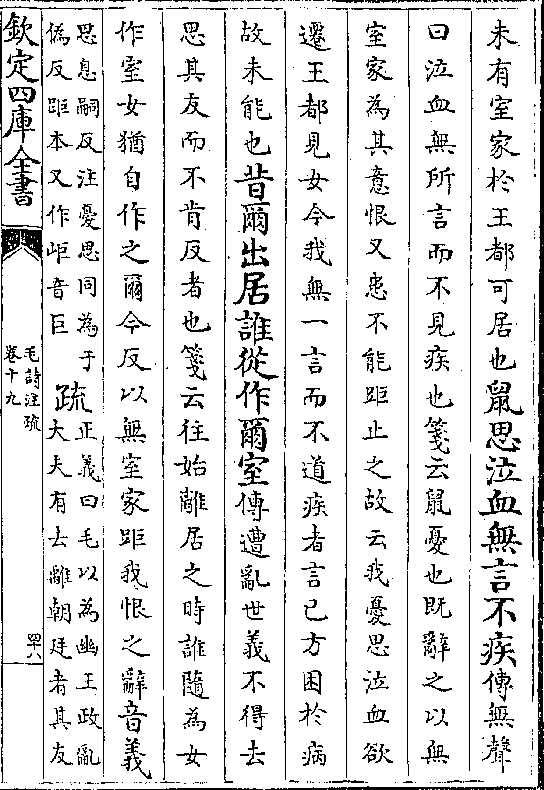 未有室家於王都可居也鼠思泣血無言不疾傳無聲
曰泣血無所言而不見疾也箋云鼠憂也既辭之以無
室家為其意恨又患不能距止之故云我憂思泣血欲
遷王都見女今我無一言而不道疾者言已方困於病
故未能也昔爾出居誰從作爾室傳遭亂世義不得去
思其友而不肯反者也箋云往始離居之時誰隨為女
作室女猶自作之爾今反以無室家距我恨之辭音義
思息嗣反注憂思同為于
偽反距本又作岠音巨
疏
正義曰毛以為幽王政亂
大夫有去離朝廷者其友
欽定四庫全書
毛詩注疏
卷十九
四十八